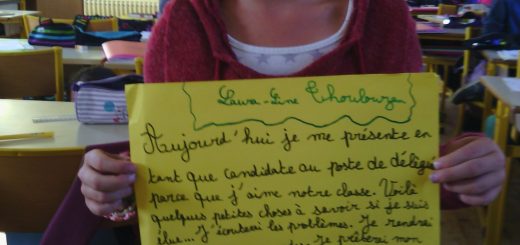 Laura-Line Thoulouzan
Aujourd'hui je me présente en
tant que candidate au poste de délégu
parce que j'aime notre classe. Voilà
quelques petites choses à savoir si je suis
élue... J'écouterai les problèmes. Je rendrai
Je prêterai mon